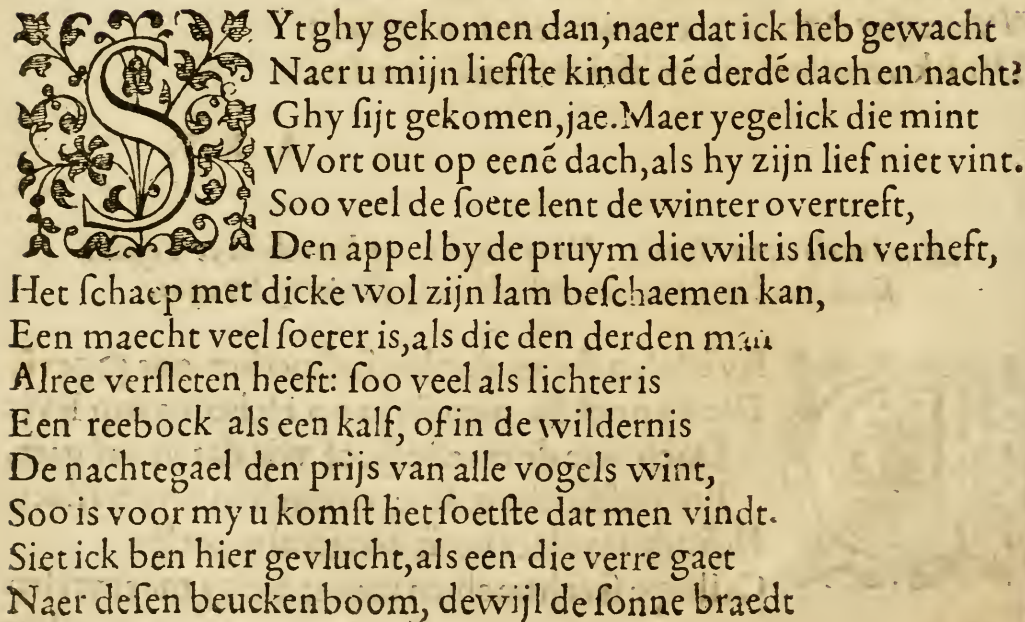 SYt ghy gekomen dan, naer dat ick heb gewacht
Naer u mijn liefſte kindt dē derdē dach en nacht?
Ghy ſijt gekomen, jae. Maer yegelick die mint
VVort out op eenē dach, als hy zijn lief niet vint.
Soo veel de ſoete lent de winter overtreft,
Den appel by de pruym die wilt is ſich verheft,
Het ſchaep met dicke wol zijn lam beſchaemen kan,
Een maecht veel ſoeter is, als die den derden man
Alree verſleten heeft: ſoo veel als lichter is
Een reebock als een kalf, of in de wildernis
De nachtegael den prijs van alle vogels wint,
Soo is voor my u komſt het ſoetſte dat men vindt.
Siet ick ben hier gevlucht, als een die verre gaet
Naer deſen beuckenboom, dewijl de ſonne braedt